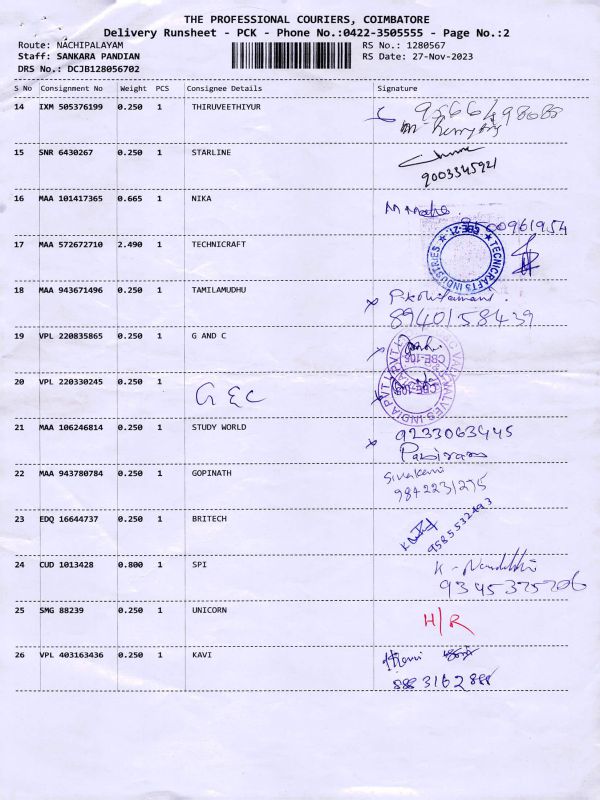 THE PROFESSIONAL COURIERS, COIMBATORE
Delivery Runsheet - PCK - Phone No.:0422-3505555 - Page No.:2
Route: NACHIPALAYAM RS No.: 1280567
Staff: SANKARA PANDIAN RS Date: 27-Nov-2023
DRS No.: DCJB128056702
S No Consignment No Weight PCS Consignee Details Signature
14 IXM 505376199 0.250 1 THIRUVEETHIYUR
15 SNR 6430267 0.250 1 STARLINE
9003345921
16 MAA 101417365 0.665 1 NIKA
8500961954
17 MAA 572672710 2.490 1 TECHNICRAFT
TECNICRAFTS INDUSTRIES ★ CBE-21. ★
18 MAA 943671496 0.250 1 TAMILAMUDHU
8940158439
19 VPL 220835865 0.250 1 G AND C
CBE-105
20 VPL 220330245 0.250 1
G&C
VALVES INDIA PVT L
CBE-105
21 MAA 106246814 0.250 1 STUDY WORLD 9233063445
22 MAA 943780784 0.250 1 GOPINATH Sivakami
9842231275
23 EDQ 16644737 0.250 1 BRITECH
9585532493
24 CUD 1013428 0.800 1 SPI
9345375206
25 SMG 88239 0.250 1 UNICORN H/R
26 VPL 403163436 0.250 1 KAVI